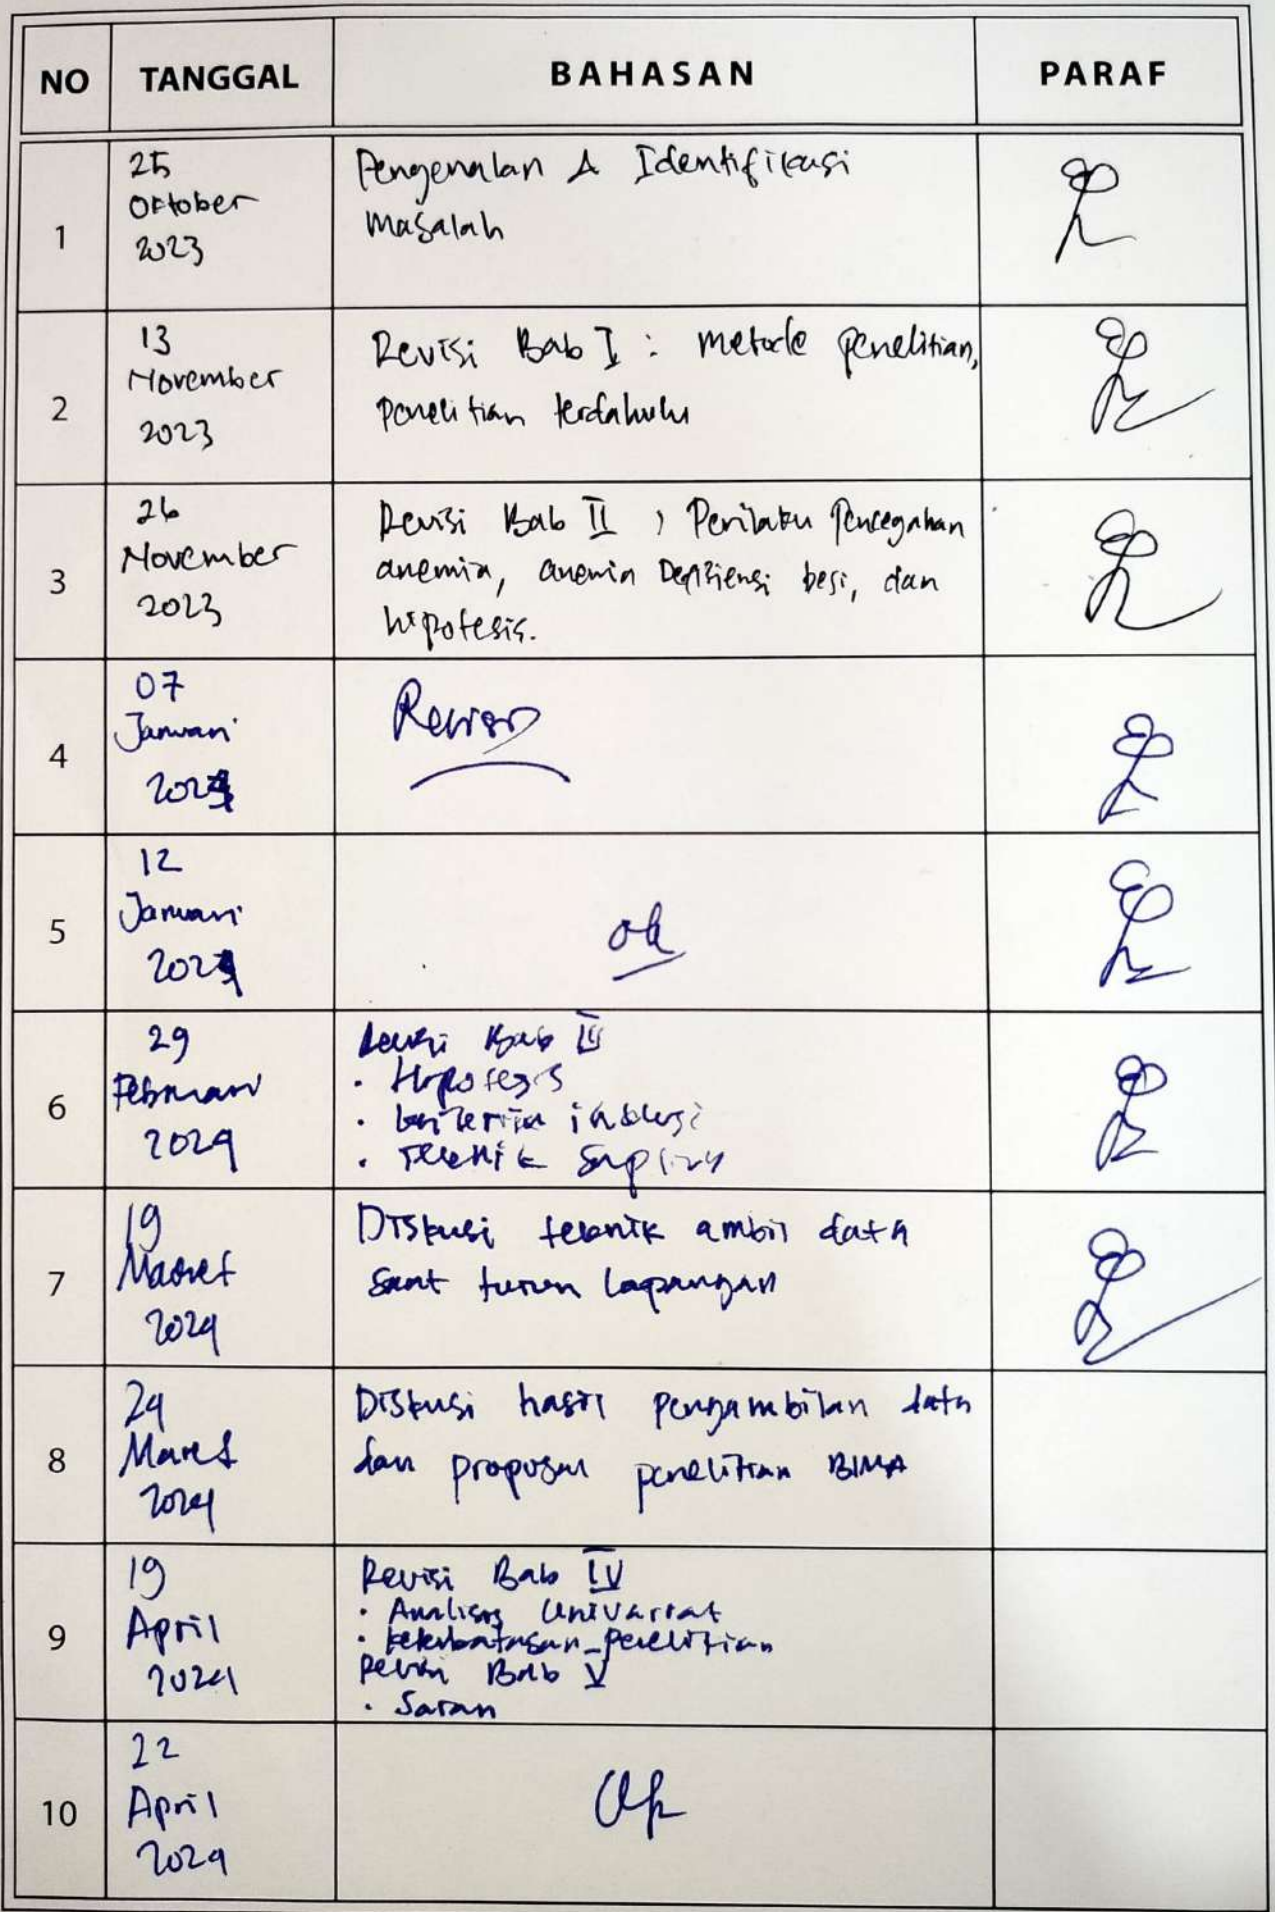 NO TANGGAL BAHASAN PARAF
1
25
Oktober
2023
Pengenalan & Identifikasi
Masalah
2
13
November
2023
Revisi Bab I : metode penelitian,
penelitian terdahulu
3
26
November
2023
Revisi Bab II ; Perilaku Pencegahan
anemia, anemia Defisiensi besi, dan
hipotesis.
4
07
Januari
2024
Revisi
5
12
Januari
2024
ok
6
29
Februari
2024
Revisi Bab III
• Hipotesis
• kriteria inklusi
• Teknik
7
19
Maret
2024
Diskusi teknik ambil data
saat turun lapangan
8
24
Maret
2024
Diskusi hasil pengambilan data
dan proposal penelitian BIMA
9
19
April
2024
Revisi Bab IV
• Analisis Univariat
• keterbatasan penelitian
Revisi Bab V
• Saran
10
22
April
2024